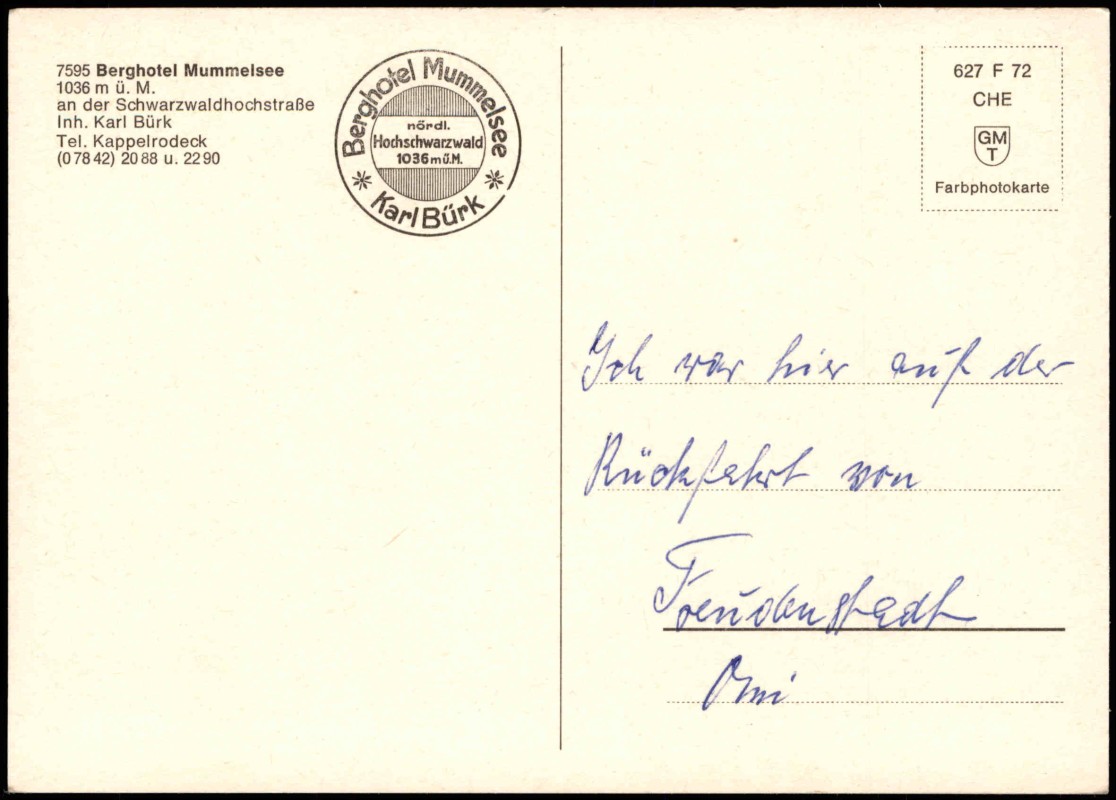 7595 Berghotel Mummelsee
1036 m ü. M.
an der Schwarzwaldhochstraße
Inh. Karl Bürk
Tel. Kappelrodeck
(0 78 42) 20 88 u. 22 90
Berghotel Mummelsee
nördl.
Hochschwarzwald
1036 m ü. M.
* Karl Bürk *
627 F 72
CHE
GM
T
Farbphotokarte
Ich war hier auf der
Rückfahrt von
Freudenstadt
Omi